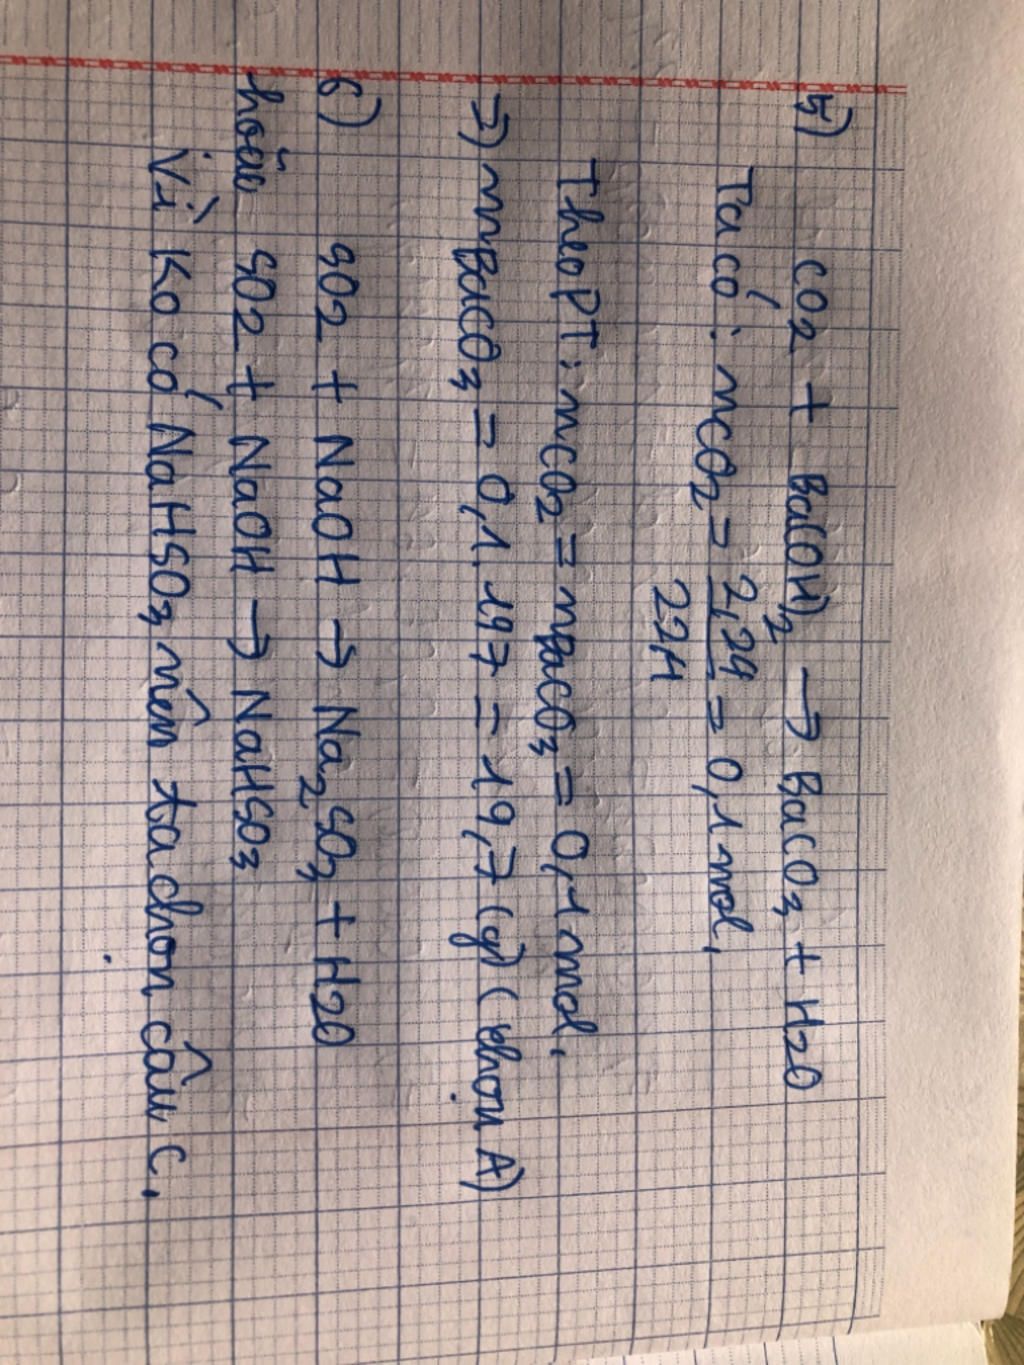 5) CO2 + Ba(OH)2 → BaCO3 + H2O
Ta có: nCO2 = 2,24/22,4 = 0,1 mol.
Theo PT: nCO2 = nBaCO3 = 0,1 mol.
=) mBaCO3 = 0,1.197 = 19,7 (g) (chọn A)
6) SO2 + NaOH → Na2SO3 + H2O
hoặc SO2 + NaOH → NaHSO3
Vì ko có NaHSO3 nên ta chọn câu C.